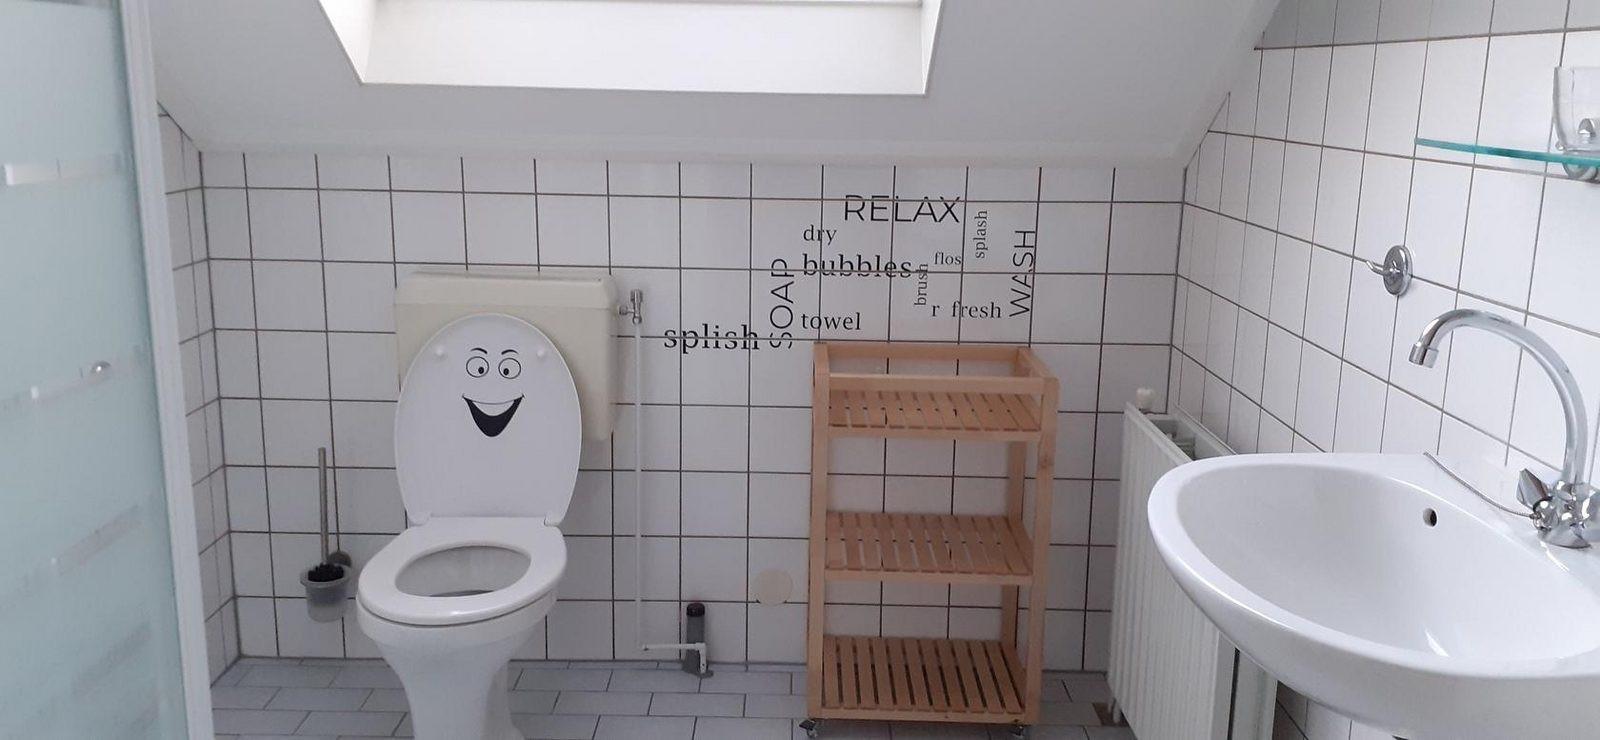 RELAX
dry
splash
bubbles
flos
WASH
SOAP
brush
r fresh
towel
splish